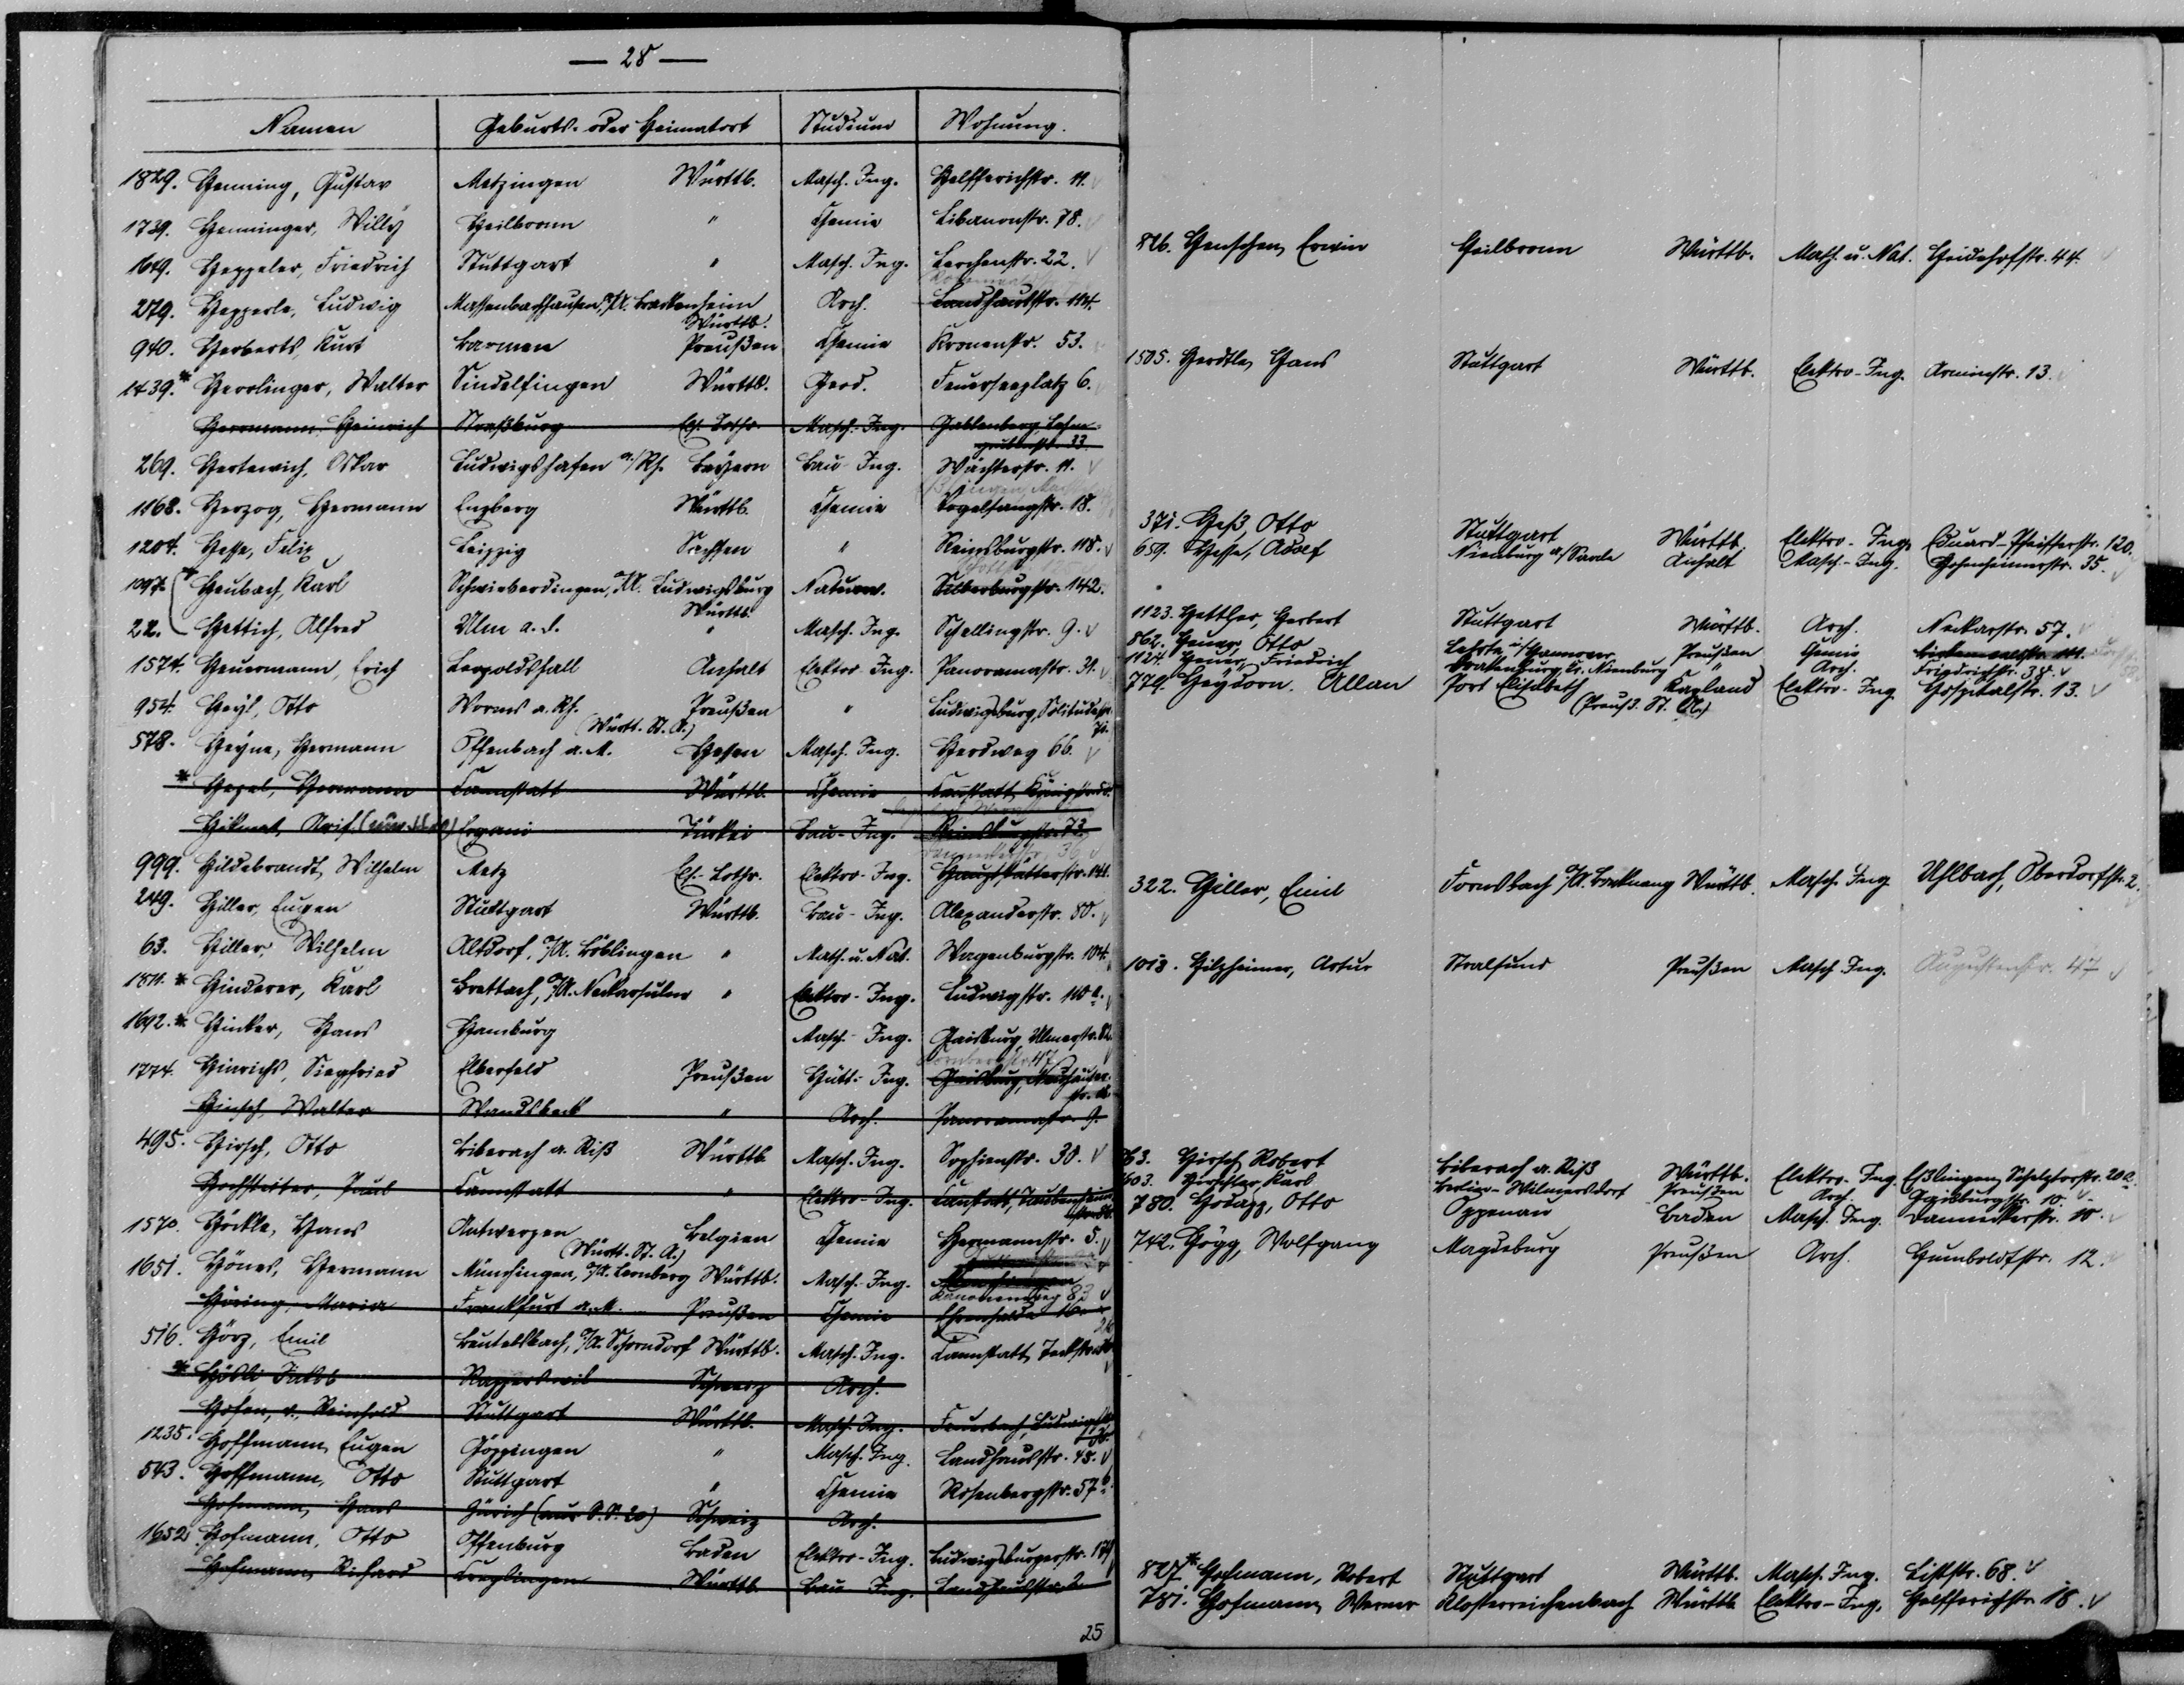 — 28 —
Namen Geburts- oder Heimatort Studium Wohnung.
1829. Henning, Gustav Metzingen Württb. Masch. Ing. Helfferichstr. 11.
1739. Henninger, Willy Heilbronn " Chemie Libanonstr. 78.
1649. Heppeler, Friedrich Stuttgart " Masch. Ing. Lerchenstr. 22.
279. Hepperle, Ludwig Massenbachhausen, O/A. Brackenheim Arch. Landhausstr. 114.
Württb.
940. Herberts, Kurt Barmen Preußen Chemie Kronenstr. 53.
1439.* Herrlinger, Walter Sindelfingen Württb. Geod. Feuerseeplatz 6.
Herrmann, Heinrich Straßburg Els. Lothr. Masch.-Ing. Gablenberg, Lehm-
grubenstr. 33.
269. Hertewich, Oskar Ludwigshafen a/Rh. Bayern Bau-Ing. Wächterstr. 11.
1168. Herzog, Hermann Enzberg Württb. Chemie Vogelsangstr. 18.
1204. Hesse, Felix Leipzig Sachsen " Reinsburgstr. 118.
1097. * Heubach, Karl Schwieberdingen, O/A. Ludwigsburg Naturw. Silberburgstr. 142.
Württb.
22. Hettich, Alfred Ulm a. D. " Masch. Ing. Schellingstr. 9.
1574. Heuermann, Erich Leopoldshall Anhalt Elektro-Ing. Panoramastr. 31.
954. Heyl, Otto Worms a. Rh. Preußen " Ludwigsburg, Solitudestr.
(Württ. St. A.) 71.
578. Heyne, Hermann Offenbach a. M. Hessen Masch. Ing. Herdweg 66.
* Hezel, Hermann Cannstatt Württb. Chemie Cannstatt,
Hikmet, Arif Ergani Türkei Bau-Ing. Reinsburgstr. 73.
999. Hildebrandt, Wilhelm Metz Els.-Lothr. Elektro-Ing. Hauptstätterstr. 141.
249. Hiller, Eugen Stuttgart Württb. Bau-Ing. Alexanderstr. 80.
63. Hiller, Wilhelm Altdorf, O/A. Böblingen " Math. u. Nat. Wagenburgstr. 104.
1871. * Hinderer, Karl Brettach, O/A. Neckarsulm " Elektro-Ing. Ludwigstr. 110 a.
1692.* Hinker, Hans Hamburg Masch.-Ing. Gaisburg, Ulmerstr. 82.
1774. Hinrichs, Siegfried Elberfeld Preußen Hütt.-Ing. Gaisburg,
Hinsch, Walter Wandsbeck " Arch. Panoramastr. 9.
495. Hirsch, Otto Biberach a. Riß Württb. Masch. Ing. Sophienstr. 30.
Hochstetter, Paul Cannstatt " Elektro-Ing. Cannstatt, Taubenheim-
1570. Höckle, Hans Antwerpen Belgien Chemie Hermannstr. 5.
(Württ. St. A.)
1651. Hönes, Hermann Münchingen, O/A. Leonberg Württb. Masch.-Ing. Münchingen
Kanonenweg 83
Höring, Maria Frankfurt a. M. Preußen Chemie Ehrenhalde 16.
516. Hörz, Emil Beutelsbach, O/A. Schorndorf Württb. Masch. Ing. Cannstatt, Teckstr.
* Hösli, Jakob Rapperswil Schweiz Arch.
Hofen, v., Reinhold Stuttgart Württb. Masch. Ing. Feuerbach, Ludwigstr.
1235. Hoffmann, Eugen Göppingen " Masch. Ing. Landhausstr. 45.
543. Hoffmann, Otto Stuttgart " Chemie Rosenbergstr. 57 b.
Hofmann, Hans Zürich (aus S. S. 20) Schweiz Arch.
1652. Hofmann, Otto Offenburg Baden Elektro-Ing. Ludwigsburgerstr. 174
Hofmann, Richard Creglingen Württb. Bau-Ing. Landhausstr. 2.
25
826. Hentschen, Erwin Heilbronn Württb. Math. u. Nat. Heidehofstr. 44.
1505. Herdtle, Hans Stuttgart Württb. Elektro-Ing. Arminstr. 13.
371. Heß, Otto Stuttgart Württb. Elektro-Ing. Eduard-Pfeifferstr. 120.
659. Hesse, Adolf Nienburg a/Saale Anhalt Masch.-Ing. Hohenheimerstr. 35.
1123. Hettler, Herbert Stuttgart Württb. Arch. Neckarstr. 57.
862. Heuer, Otto Lehrte i/Hannover Preußen Chemie
1124. Heuer, Friedrich Drakenburg, Kr. Nienburg " Arch. Friedrichstr. 38.
779. Heydorn, Allan Port Elisabeth Kapland Elektro-Ing. Hospitalstr. 13.
(Preuß. St. A.)
322. Hiller, Emil Fornsbach O/A. Backnang Württb. Masch. Ing. Uhlbach, Oberdorfstr. 2.
1013. Hilzheimer, Artur Stralsund Preußen Masch. Ing. Augustenstr. 47
63. Hirsch, Robert Biberach a. Riß Württb. Elektro-Ing. Eßlingen, Schelztorstr. 20 a.
603. Hirschler, Karl Berlin-Wilmersdorf Preußen Arch. Gaisburgstr. 10.
780. Hodapp, Otto Oppenau Baden Masch. Ing. Danneckerstr. 10.
742. Högg, Wolfgang Magdeburg Preußen Arch. Humboldtstr. 12.
827.* Hofmann, Robert Stuttgart Württb. Masch. Ing. Liststr. 68.
781. Hofmann, Werner Klosterreichenbach Württb. Elektro-Ing. Helfferichstr. 18.